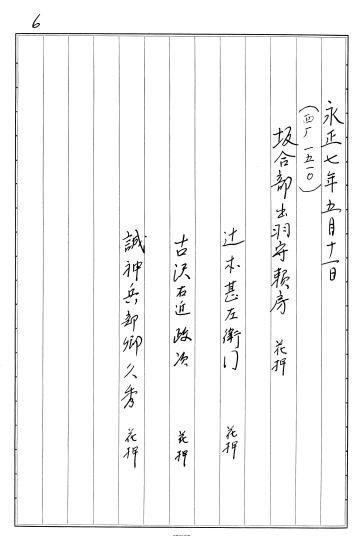 6
永正七年五月十一日
(西厂一五一〇)
坂合部出羽守頼房 花押
辻本甚左衛门 花押
古沢右近政次 花押
誠神兵部卿久秀 花押